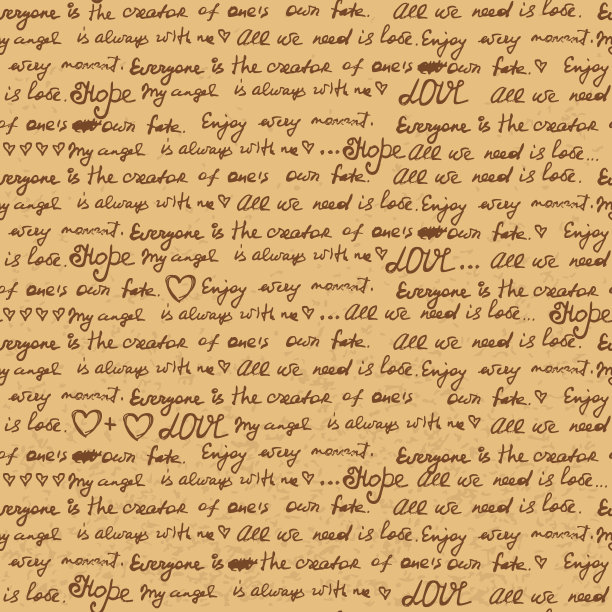 everyone is the creator of one's own fate. All we need is love. E
my angel is always with me ♡ All we need is love. Enjoy every moment. M
every moment. Everyone is the creator of one's own fate. ♡ Enjoy
is love. Hope My angel is always with me ♡ LOVE All we need
of one's own fate. Enjoy every moment. Everyone is the creator
♡♡♡♡ My angel is always with me ♡ ... Hope All we need is love...
everyone is the creator of one's own fate. All we need is love. Ev
my angel is always with me ♡ All we need is love. Enjoy every moment. M
every moment. Everyone is the creator of one's own fate. ♡ Enjoy
is love. Hope My angel is always with me ♡ LOVE ... All we need
of one's own fate. ♡ Enjoy every moment. Everyone is the creator
♡♡♡♡ My angel is always with me ♡ ... All we need is love... Hope
everyone is the creator of one's own fate. All we need is love. Ev
my angel is always with me ♡ All we need is love. Enjoy every moment. M
every moment. Everyone is the creator of one's own fate. ♡ Enjoy
is love. ♡ + ♡ LOVE My angel is always with me ♡ All we need
of one's own fate. Enjoy every moment. Everyone is the creator
♡♡♡♡ My angel is always with me ♡ ... Hope All we need is love...
everyone is the creator of one's own fate. All we need is love. Ev
my angel is always with me ♡ All we need is love. Enjoy every moment. M
every moment. Everyone is the creator of one's own fate. ♡ Enjoy
is love. Hope My angel is always with me ♡ LOVE All we need